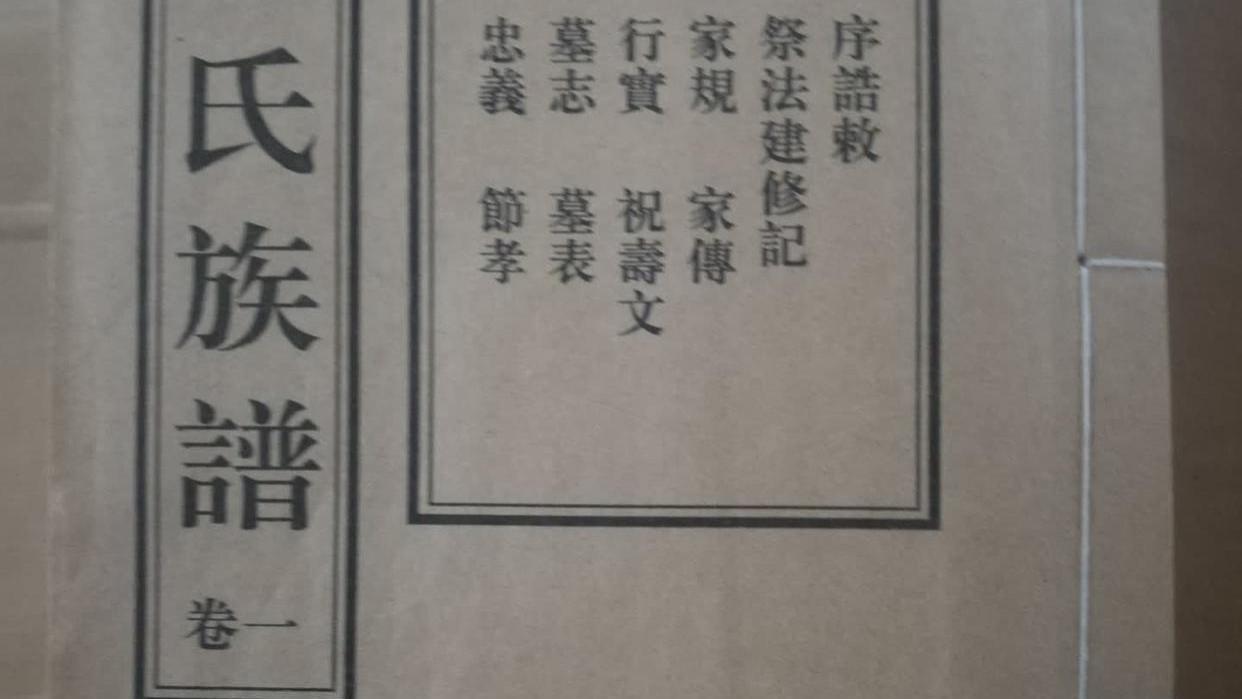 序誥敕
祭法建修記
家規 家傳
行實 祝壽文
墓志 墓表
忠義 節孝
氏族譜
卷一